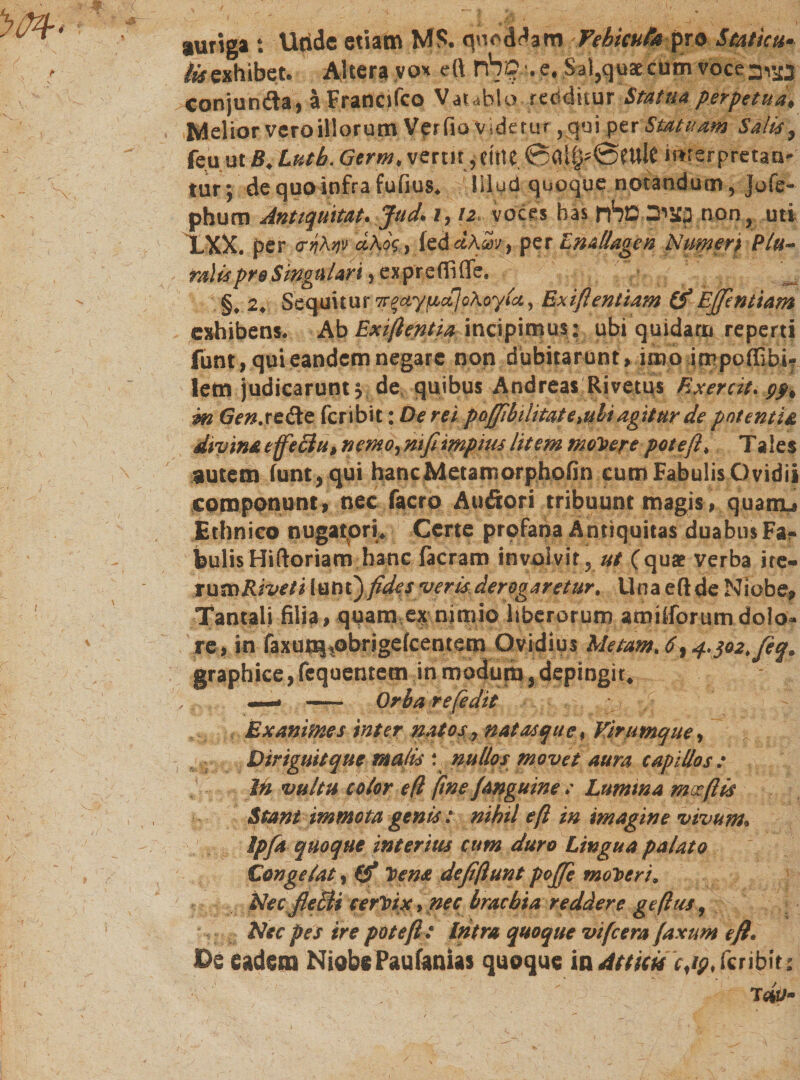 304.
auriga : Unde etiam MS. quoddam Vehicula pro Staticu-
lis exhibet. Altera vox est מלח i. e. Sal, quæ cum voce נציב
conjuncta, à Francisco Vatablo redditur Statua perpetua.
Melior vero illorum Versio videtur, qui per Statuam Salis,
seu ut B. Luth. Germ. vertit, eine Saltz-Seule interpretan-
tur; de quo infra fusius. Illud quoque notandum, Jose-
phum Antiquitat. Jud. 1, 12. voces has נציב מלח non, uti
LXX. per στήλην ἁλὸς, sed ἁλῶν, per Enallagen Numeri Plu-
ralis pro Singulari, expressisse.
§. 2. Sequitur πραγματολογία, Existentiam & Essentiam
exhibens. Ab Existentia incipimus: ubi quidam reperti
sunt, qui eandem negare non dubitarunt, imo impossibi-
lem judicarunt; de quibus Andreas Rivetus Exercit. 99.
in Gen. recte scribit: De rei possibilitate, ubi agitur de potentiæ
divinæ effectu, nemo, nisi impius litem movere potest. Tales
autem sunt, qui hanc Metamorphosin cum Fabulis Ovidii
componunt, nec sacro Auctori tribuunt magis, quam
Ethnico nugatori. Certe profana Antiquitas duabus Fa-
bulis Historiam hanc sacram involvit, ut (quæ verba ite-
rum Riveti sunt) fides veris derogaretur. Una est de Niobe,
Tantali filia, quam ex nimio liberorum amissorum dolo-
re, in saxum obrigescentem Ovidius Metam. 6, 4. 302. seq.
graphice, sequentem in modum, depingit.
— — Orba resedit
Exanimes inter natos, natasque, Virumque,
Diriguitque malis : nullos movet aura capillos :
In vultu color est sine sanguine : Lumina mœstis
Stant immota genis : nihil est in imagine vivum.
Ipsa quoque interius cum duro Lingua palato
Congelat, & venæ desistunt posse moveri.
Nec flecti cervix, nec brachia reddere gestus,
Nec pes ire potest : Intra quoque viscera saxum est.
De eadem Niobe Pausanias quoque in Atticis c. 19. scribit :
Ταύ-